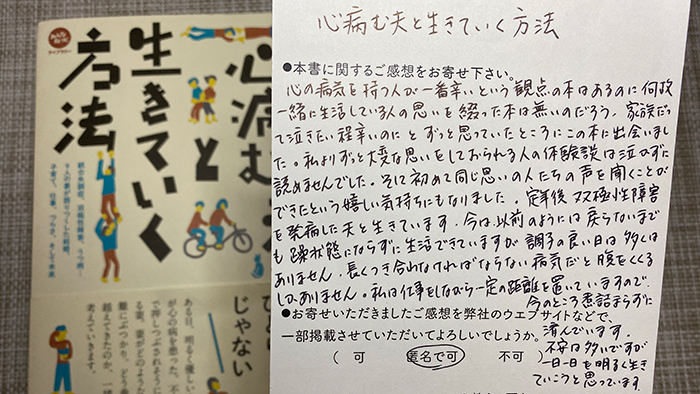 心病む夫と生きていく方法
●本書に関するご感想をお寄せ下さい。
心の病気を持つ人が一番辛いという観点の本はあるのに何故
一緒に生活している人の思いを綴った本は無いのだろう、家族だっ
て泣きたい程辛いのにとずっと思っていたところにこの本に出会いまし
た。私よりずっと大変な思いをしておられる人の体験談は泣かずに
読めませんでした。そして初めて同じ思いの人たちの声を聞くことが
できたという嬉しい気持ちにもなりました。定年後双極性障害
を発病した夫と生きています。今は以前のようには戻らないまで
も躁状態にならずに生活できていますが調子の良い日は多くは
ありません。長くつき合わなければならない病気だと腹をくくる
しかありません。私は仕事をしながら一定の距離を置いていますので、
今のところ煮詰まらずに
済んでいます。
不安は多いですが
一日一日を明るく生き
ていこうと思っています。
●お寄せいただきましたご感想を弊社のウェブサイトなどで、
一部掲載させていただいてよろしいでしょうか。
( 可 匿名で可 不可 )
みんなねっと
ライブラリー
心病む
と
生きていく
方法
統合失調症、双極性障害、うつ病…
9人の妻が語りつくした結婚、
子育て、仕事、つらさ、そして未来
じゃない
ある日、明るく優しい
が心の病を患った。不
で押しつぶされそうに
る妻。妻がどのような
難にぶつかり、どう乗
越えてきたのか、一緒
考えていきます。